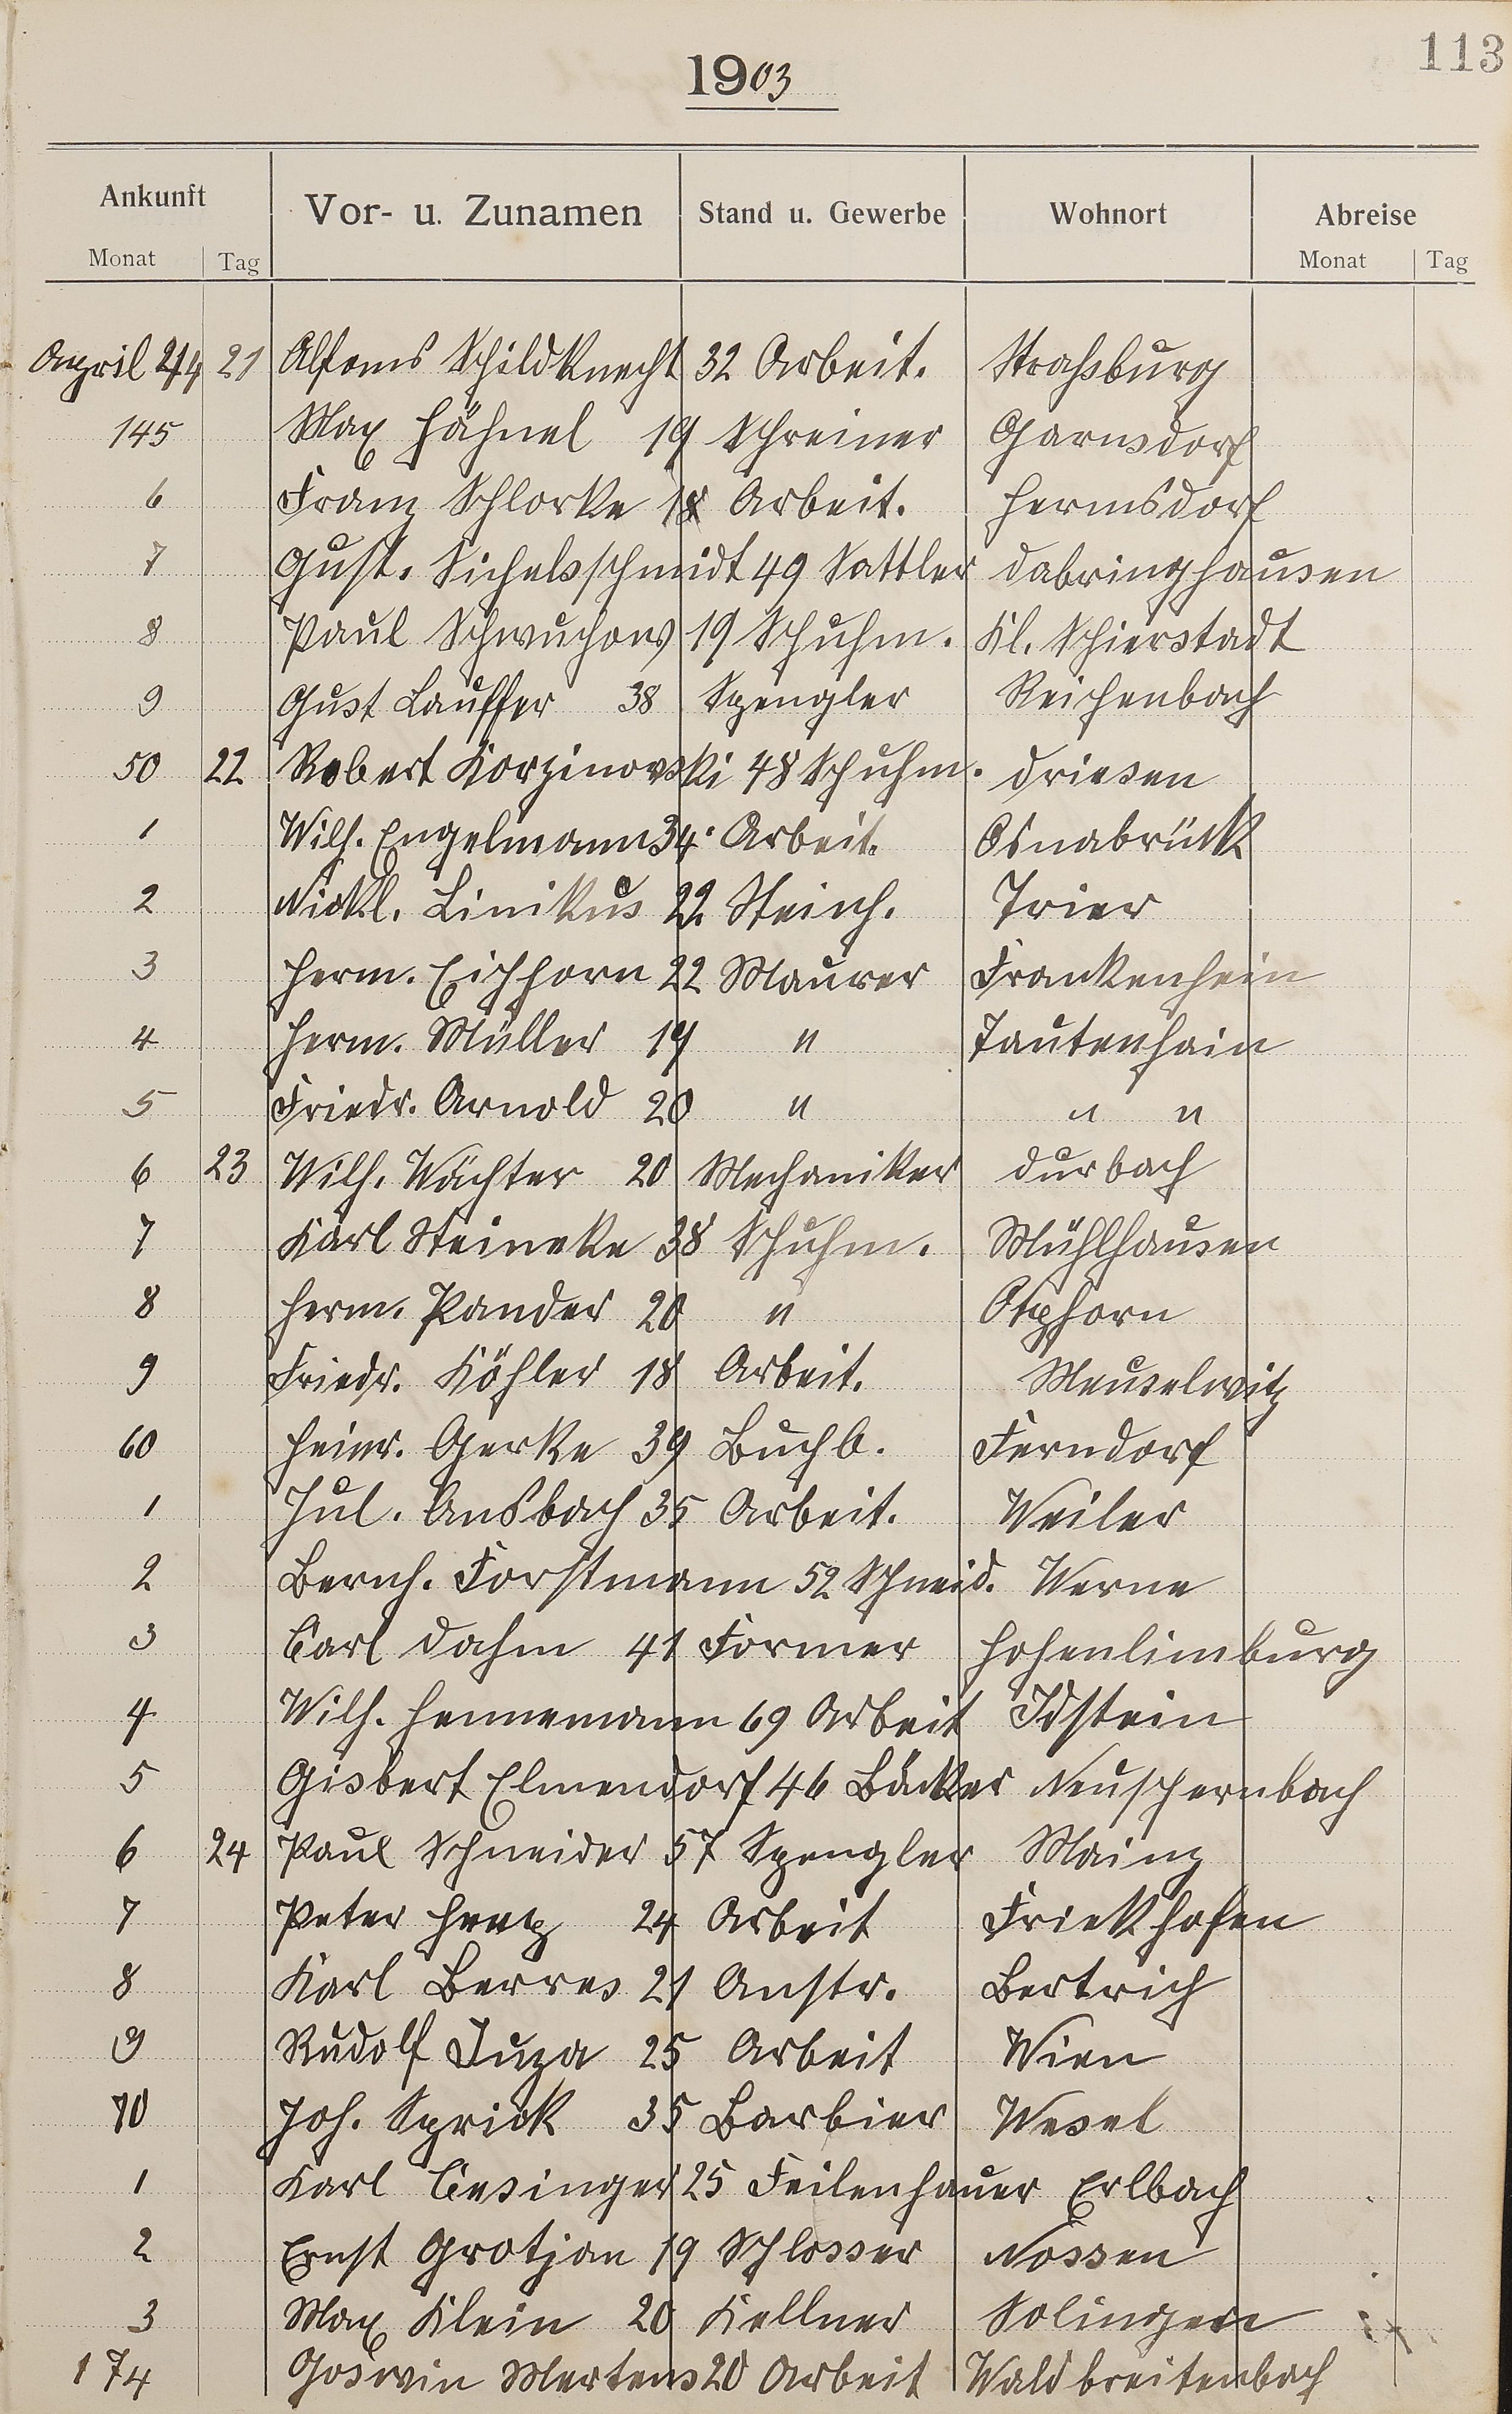 113
1903
Ankunft Vor- u. Zunamen Stand u. Gewerbe Wohnort Abreise
Monat Tag Monat Tag
April 21 Alfons Schildknecht 32 Arbeit. Straßburg
145 Max Hähnel 19 Schreiner Garnsdorf
6 Franz Schlorke 18 Arbeit. Hermsdorf
7 Gust. Sichelsschmidt 49 Sattler Dabringhausen
8 Paul Schwuchow 19 Schuhm. Kl. Schierstadt
9 Gust Lauffer 38 Spengler Reichenbach
50 22 Robert Korzinowski 48 Schuhm. Driesen
1 Wilh. Engelmann 34 Arbeit. Osnabrück
2 Nickl. Linikus 22 Steinh. Trier
3 Herm. Eichhorn 22 Maurer Frankenhein
4 Herm. Müller 19 " Tautenhain
5 Friedr. Arnold 20 " " "
6 23 Wilh. Wächter 20 Mechaniker Durbach
7 Karl Steineke 38 Schuhm. Mühlhausen
8 Herm. Pander 20 "
9 Friedr. Köhler 18 Arbeit. Meuselwitz
60 Heinr. Gerke 39 Buchb. Ferndorf
1 Jul. Ansbach 35 Arbeit. Weiler
2 Bernh. Forstmann 52 Schneid. Werne
3 Carl Dahm 41 Former Hohenlimburg
4 Wilh. Hennemann 69 Arbeit Idstein
5 Gisbert Elmendorf 46 Bäcker Neuschernbach
6 24 Paul Schneider 57 Spengler Mainz
7 Peter 24 Arbeit Frickhofen
8 Karl Berres 21 Anstr. Bertrich
9 Rudolf Juza 25 Arbeit Wien
70 Joh. Sprick 35 Barbier Wesel
1 Karl Ciesinger 25 Feilenhauer Erlbach
2 Ernst Grotjan 19 Schlosser Nossen
3 Max Klein 20 Kellner Solingen
174 Goswin Mertens 20 Arbeit Waldbreitenbach